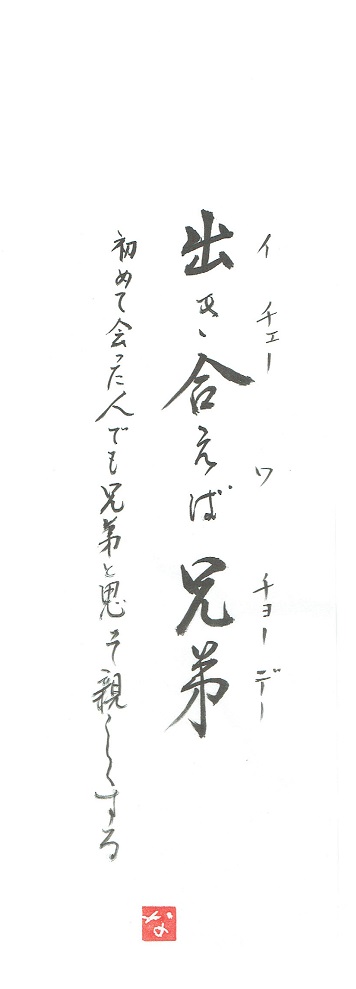 イチェーワチョーデー
出き合えば兄弟
初めて会った人でも兄弟と思って親しくする
な